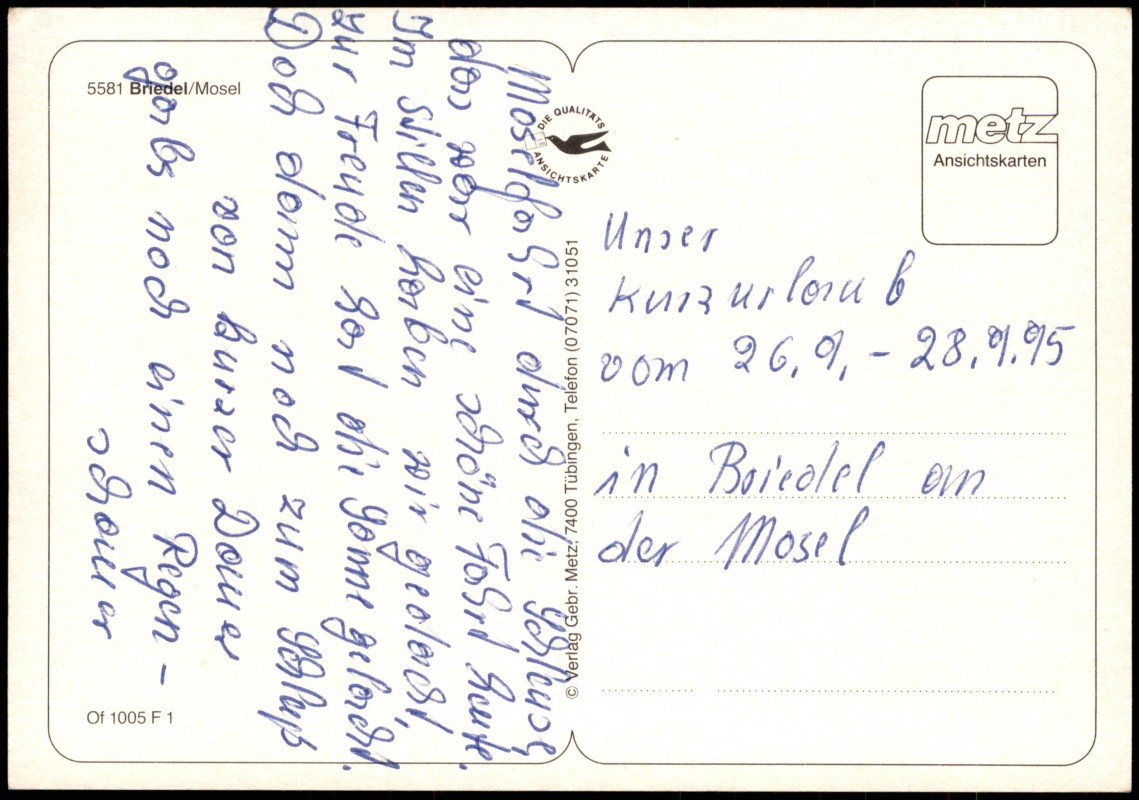 5581 Briedel/Mosel
Moselfahrt durch die Schleuse,
das war eine schöne Fahrt heute.
Im Stillen haben wir gedacht,
zur Freude hat die Sonne gelacht.
Doch dann noch zum Schluß
von kurzer Dauer
gabs noch einen Regen-
schauer
Of 1005 F 1
DIE QUALITÄTS
ANSICHTSKARTE
© Verlag Gebr. Metz, 7400 Tübingen, Telefon (07071) 31051
metz
Ansichtskarten
Unser
Kurzurlaub
vom 26.9. - 28.9.95
in Briedel an
der Mosel